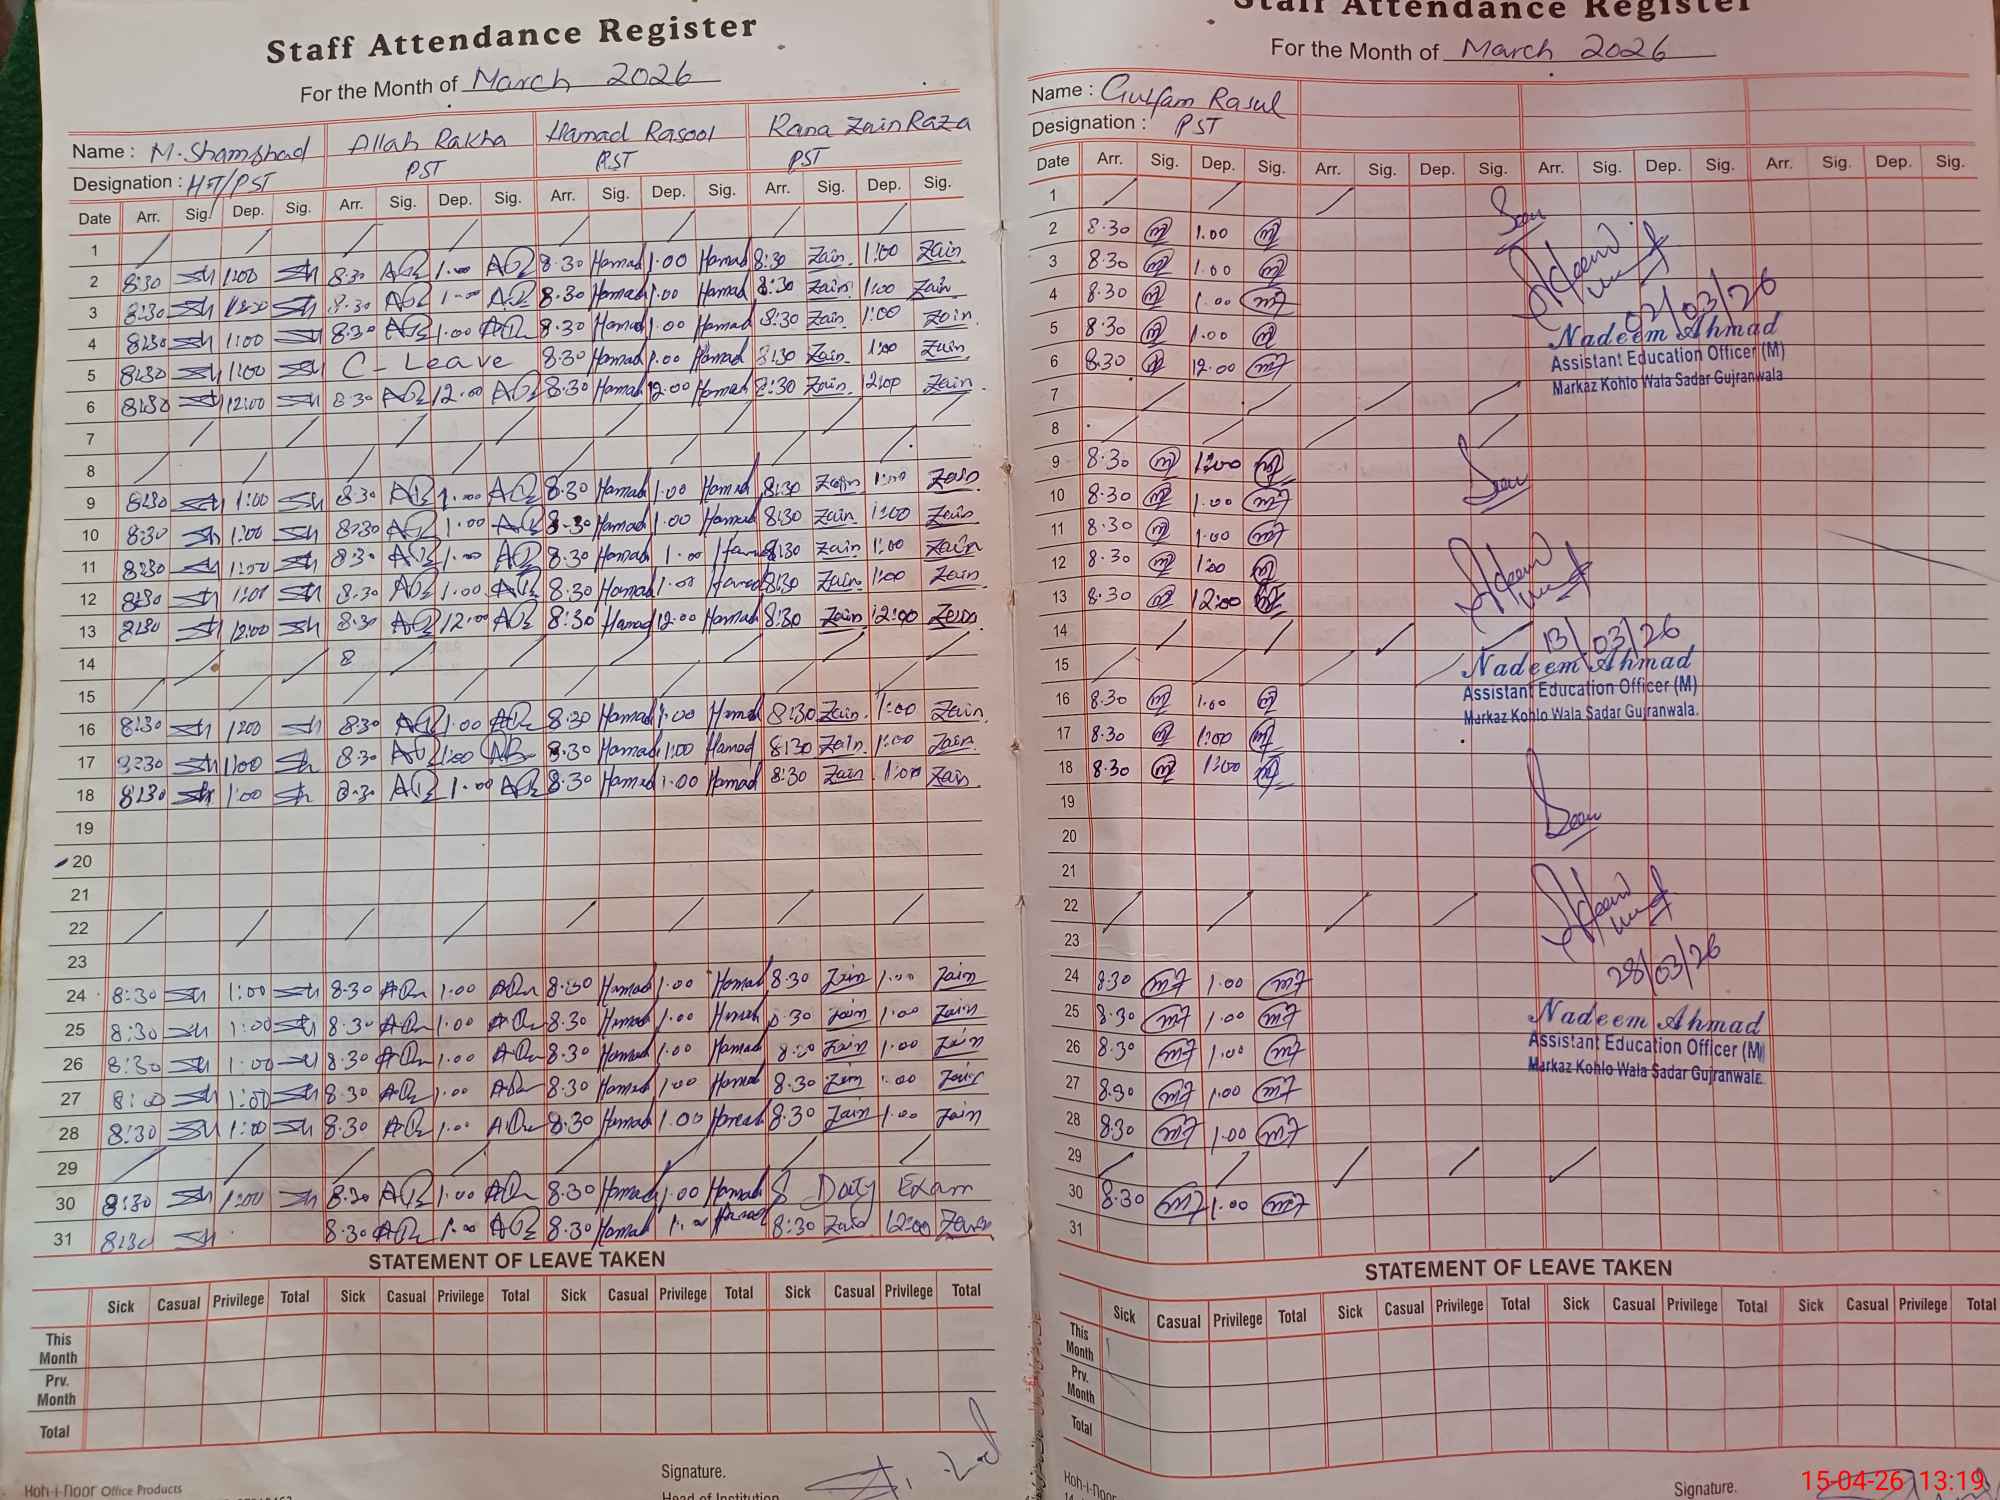 Staff Attendance Register
For the Month of March 2026
Name : M. Shamshad Allah Rakha Hamad Rasool Rana Zain Raza
Designation : HT/PST PST PST PST
Date Arr. Sig. Dep. Sig. Arr. Sig. Dep. Sig. Arr. Sig. Dep. Sig. Arr. Sig. Dep. Sig.
1
2 8:30 1:00 8:30 1.00 8.30 Hamad 1.00 Hamad 8:30 Zain 1:00 Zain
3 8:30 8.30 1.00 8.30 Hamad 1.00 Hamad 8:30 Zain 1:00 Zain
4 8:30 1:00 8:30 1.00 8.30 Hamad 1.00 Hamad 8:30 Zain 1:00 Zain
5 8:30 1:00 C-Leave 8:30 Hamad 1.00 Hamad 8:30 Zain 1:00 Zain
6 8:30 12:00 8:30 12.00 8:30 Hamad 12.00 Hamad 8:30 Zain 12:00 Zain
7
8
9 8:30 1:00 8.30 1.00 8.30 Hamad 1.00 Hamad 8:30 Zain 1:00 Zain
10 8:30 1:00 8:30 1.00 8.30 Hamad 1.00 Hamad 8:30 Zain 1:00 Zain
11 8:30 1:00 8.30 1.00 8.30 Hamad 1.00 8:30 Zain 1:00 Zain
12 8:30 1:00 8.30 1.00 8.30 Hamad 1.00 Hamad 8:30 Zain 1:00 Zain
13 8:30 12:00 8.30 12.00 8:30 Hamad 12.00 Hamad 8:30 Zain 12:00 Zain
14 8
15
16 8:30 1:00 8:30 1.00 8:30 Hamad 1:00 Hamad 8:30 Zain 1:00 Zain
17 8:30 1:00 8.30 1:00 8.30 Hamad 1:00 Hamad 8:30 Zain 1:00 Zain
18 8:30 1:00 8:30 1.00 8.30 Hamad 1.00 Hamad 8:30 Zain 1:00 Zain
19
20
21
22
23
24 8:30 1:00 8.30 1.00 8:30 Hamad 1.00 Hamad 8.30 Zain 1.00 Zain
25 8:30 1:00 8.30 1.00 8.30 Hamad 1.00 Hamad 8.30 Zain 1.00 Zain
26 8:30 1:00 8.30 1.00 8.30 Hamad 1.00 Hamad 8:30 Zain 1.00 Zain
27 1:00 8.30 1.00 8.30 Hamad 1.00 Hamad 8.30 Zain 1.00 Zain
28 8:30 1:00 8.30 1.00 8.30 Hamad 1.00 Hamad 8.30 Zain 1.00 Zain
29
30 8:30 1:00 8.30 1.00 8.30 Hamad 1.00 Hamad 8 Duty Exam
31 8:30 8.30 1.00 8.30 Hamad 1.00 8:30 Zain 12:00 Zain
STATEMENT OF LEAVE TAKEN
Sick Casual Privilege Total Sick Casual Privilege Total Sick Casual Privilege Total Sick Casual Privilege Total
This Month
Prv. Month
Total
Signature.
Head of Institution
Koh-i-noor Office Products
Staff Attendance Register
For the Month of March 2026
Name : Gulfam Rasul
Designation : PST
Date Arr. Sig. Dep. Sig. Arr. Sig. Dep. Sig. Arr. Sig. Dep. Sig. Arr. Sig. Dep. Sig.
1
2 8.30 1.00
3 8.30 1.00
4 8.30 1.00
5 8.30 1.00
6 8.30 12.00
7
8
9 8.30 1:00
10 8.30 1.00
11 8.30 1.00
12 8.30 1:00
13 8.30 12:00
14
15
16 8.30 1.00
17 8.30 1:00
18 8.30 1:00
19
20
21
22
23
24 8.30 1.00
25 8.30 1.00
26 8.30 1.00
27 8.30 1.00
28 8.30 1.00
29
30 8.30 1.00
31
Seen
02/03/26
Nadeem Ahmad
Assistant Education Officer (M)
Markaz Kohlo Wala Sadar Gujranwala
Seen
13/03/26
Nadeem Ahmad
Assistant Education Officer (M)
Markaz Kohlo Wala Sadar Gujranwala.
Seen
28/03/26
Nadeem Ahmad
Assistant Education Officer (M)
Markaz Kohlo Wala Sadar Gujranwala.
STATEMENT OF LEAVE TAKEN
Sick Casual Privilege Total Sick Casual Privilege Total Sick Casual Privilege Total Sick Casual Privilege Total
This Month
Prv. Month
Total
Koh-i-noor
Signature.
15-04-26 13:19